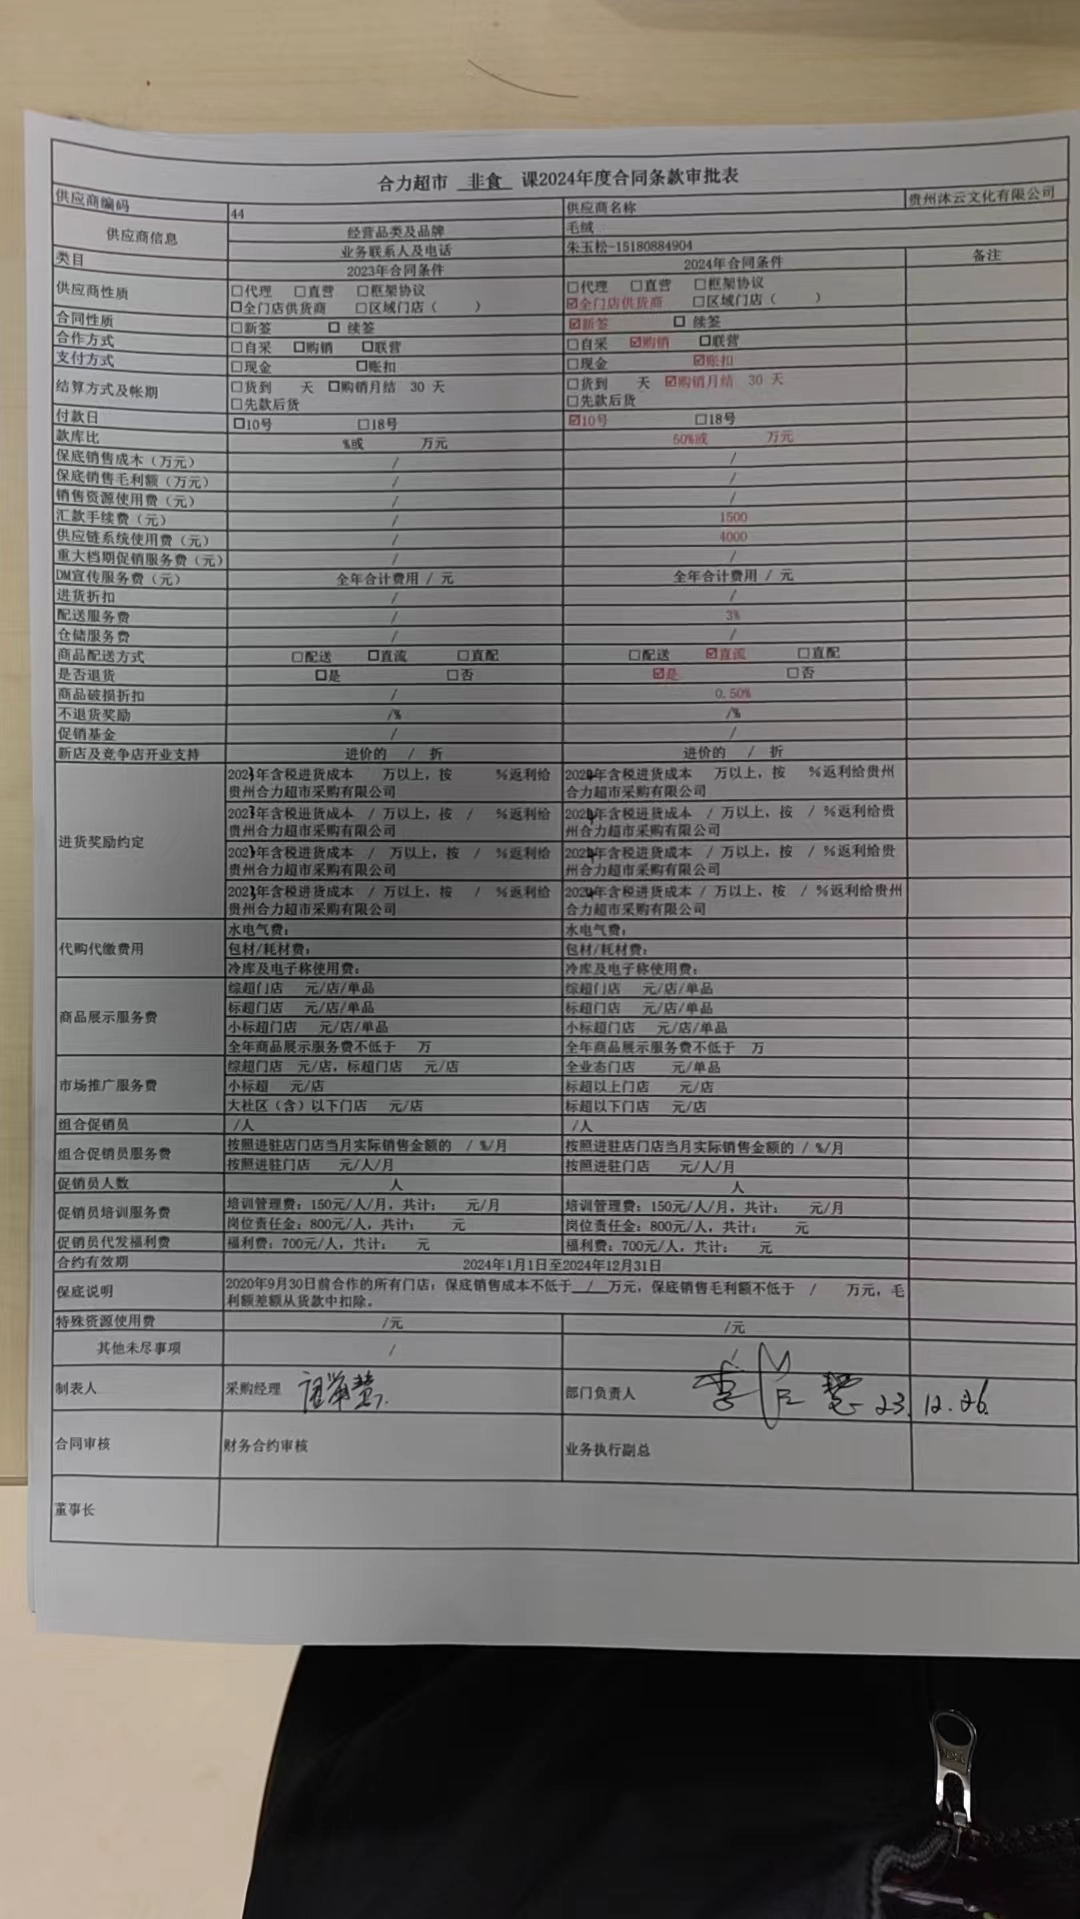 合力超市 非食 课2024年度合同条款审批表
供应商编码 44 供应商名称 贵州沐云文化有限公司
供应商信息 经营品类及品牌 毛绒
业务联系人及电话 朱玉松-15180884904
类目 2023年合同条件 2024年合同条件 备注
供应商性质 □代理 □直营 □框架协议 □代理 □直营 □框架协议
□全门店供货商 □区域门店（ ） ☑全门店供货商 □区域门店（ ）
合同性质 □新签 □ 续签 ☑新签 □ 续签
合作方式 □自采 □购销 □联营 □自采 ☑购销 □联营
支付方式 □现金 □账扣 □现金 ☑账扣
结算方式及帐期 □货到 天 □购销月结 30 天 □货到 天 ☑购销月结 30 天
□先款后货 □先款后货
付款日 □10号 □18号 ☑10号 □18号
款库比 %或 万元 50%或 万元
保底销售成本（万元） / /
保底销售毛利额（万元） / /
销售资源使用费（元） / /
汇款手续费（元） / 1500
供应链系统使用费（元） / 4000
重大档期促销服务费（元） / /
DM宣传服务费（元） 全年合计费用 / 元 全年合计费用 / 元
进货折扣 / /
配送服务费 / 3%
仓储服务费 / /
商品配送方式 □配送 □直流 □直配 □配送 ☑直流 □直配
是否退货 □是 □否 ☑是 □否
商品破损折扣 / 0.50%
不退货奖励 /% /%
促销基金 / /
新店及竞争店开业支持 进价的 / 折 进价的 / 折
进货奖励约定
2023年含税进货成本 万以上，按 %返利给 2024年含税进货成本 万以上，按 %返利给贵州
贵州合力超市采购有限公司 合力超市采购有限公司
2023年含税进货成本 / 万以上，按 / %返利给 2024年含税进货成本 / 万以上，按 / %返利给贵
贵州合力超市采购有限公司 州合力超市采购有限公司
2023年含税进货成本 / 万以上，按 / %返利给 2024年含税进货成本 / 万以上，按 / %返利给贵
贵州合力超市采购有限公司 州合力超市采购有限公司
2023年含税进货成本 / 万以上，按 / %返利给 2024年含税进货成本 / 万以上，按 / %返利给贵州
贵州合力超市采购有限公司 合力超市采购有限公司
代购代缴费用
水电气费： 水电气费：
包材/耗材费： 包材/耗材费：
冷库及电子称使用费： 冷库及电子称使用费：
商品展示服务费
综超门店 元/店/单品 综超门店 元/店/单品
标超门店 元/店/单品 标超门店 元/店/单品
小标超门店 元/店/单品 小标超门店 元/店/单品
全年商品展示服务费不低于 万 全年商品展示服务费不低于 万
市场推广服务费
综超门店 元/店，标超门店 元/店 全业态门店 元/单品
小标超 元/店 标超以上门店 元/店
大社区（含）以下门店 元/店 标超以下门店 元/店
组合促销员 /人 /人
组合促销员服务费 按照进驻店门店当月实际销售金额的 / %/月 按照进驻店门店当月实际销售金额的 / %/月
按照进驻门店 元/人/月 按照进驻门店 元/人/月
促销员人数 人 人
促销员培训服务费 培训管理费：150元/人/月，共计： 元/月 培训管理费：150元/人/月，共计： 元/月
岗位责任金：800元/人，共计： 元 岗位责任金：800元/人，共计： 元
促销员代发福利费 福利费：700元/人，共计： 元 福利费：700元/人，共计： 元
合约有效期 2024年1月1日至2024年12月31日
保底说明 2020年9月30日前合作的所有门店，保底销售成本不低于 / 万元，保底销售毛利额不低于 / 万元，毛
利额差额从货款中扣除。
特殊资源使用费 /元 /元
其他未尽事项 / /
制表人 采购经理 部门负责人 23.12.26.
合同审核 财务合约审核 业务执行副总
董事长